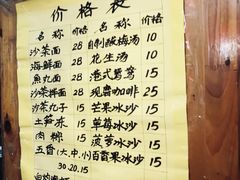 价格表
名称 价格 名称 价格
沙菜面 28 自制酸梅汤 10
海鲜面 28 花生汤 10
鱼丸面 28 港式鸳鸯 15
沙菜拌面 28 现磨咖啡 25
沙菜丸子 15 芒果冰沙 15
土笋冻 15 草莓冰沙 15
肉粽 15 菠萝冰沙 15
五香(大.中.小) 百香果冰沙 15
30.20.15